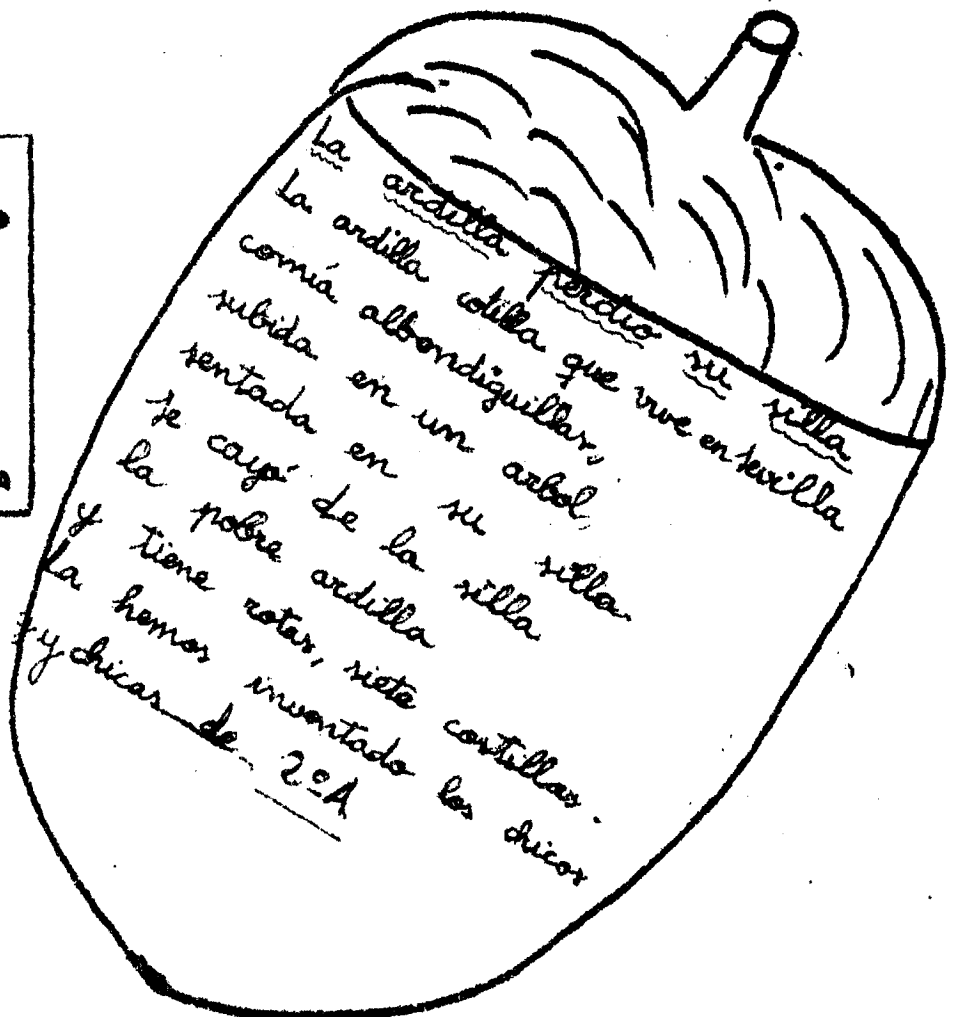 La ardilla perdió su silla
La ardilla cotilla que vive en Sevilla
comía albondiguillas,
subida en un arbol,
sentada en su silla.
Se cayó de la silla
la pobre ardilla
y tiene rotas, siete costillas.
La hemos inventado los chicos
y chicas de 2ºA